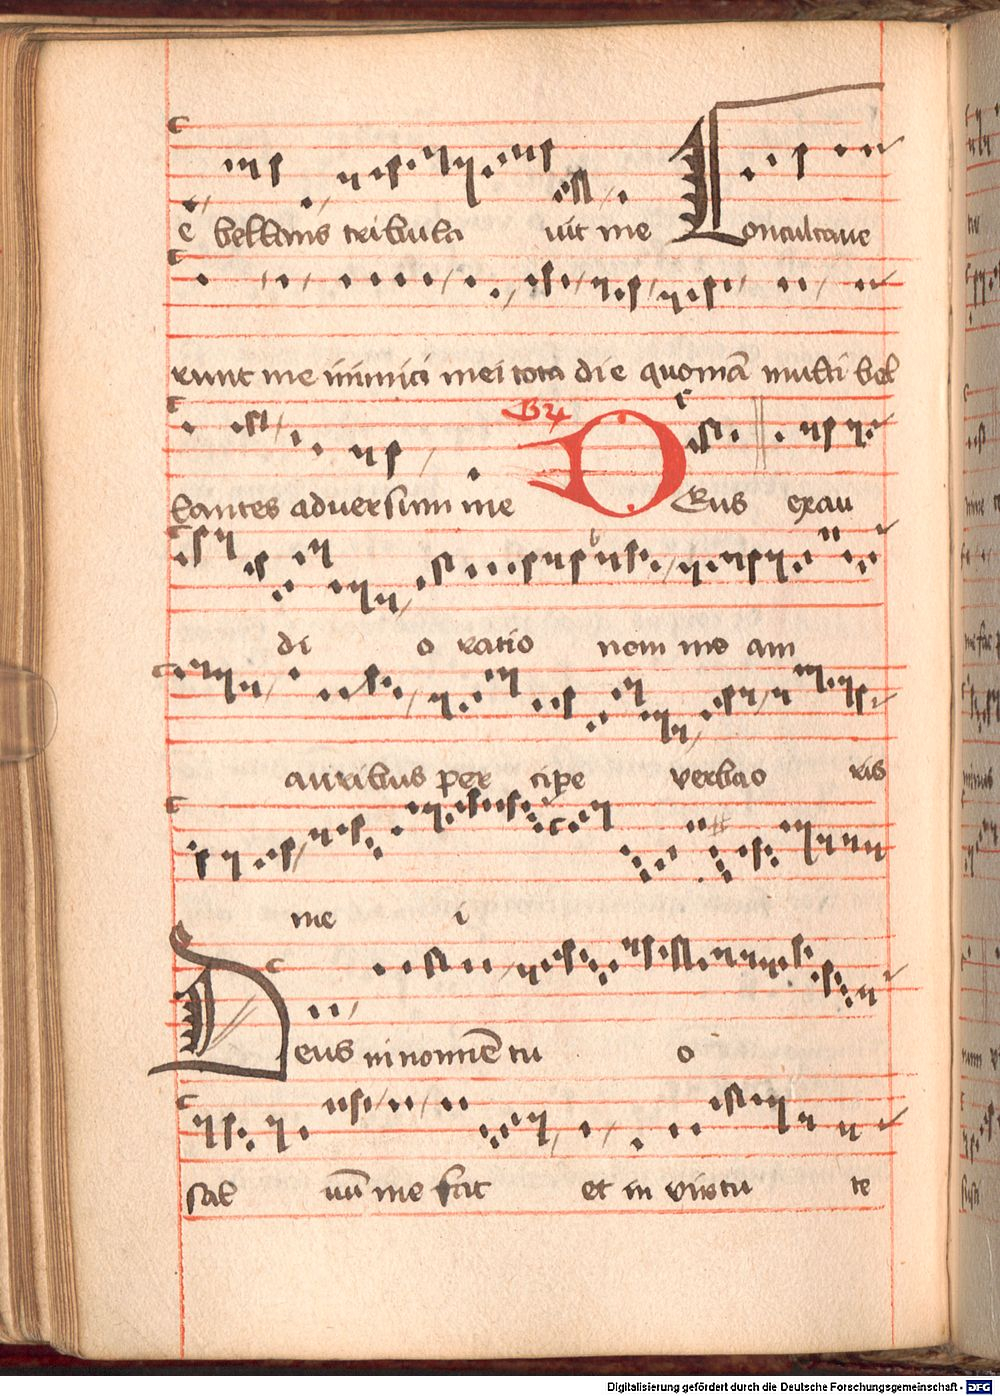 e bellans tribula uit me Conculcaue
runt me inimici mei tota die quoniā multi bel
lantes adversum me Deus exau
di o ratio nem me am
auribus per cipe verba o ris
me i
Deus in nomīe tu o
sal uū me fac et in virtu te
Digitalisierung gefördert durch die Deutsche Forschungsgemeinschaft - DFG